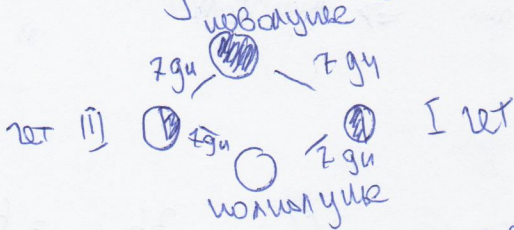 новолуние
7 дн 7 дн
чет III I чет
7 дн 7 дн
полнолуние